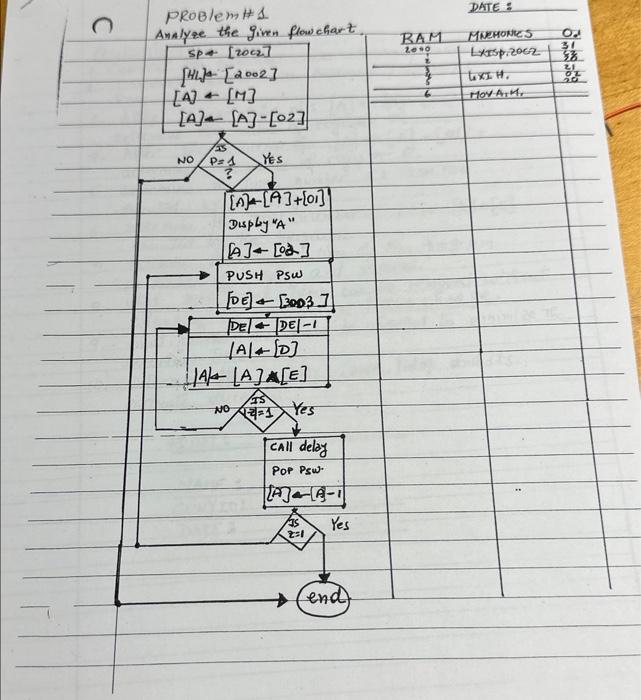 DATE :
PROBlem#1
Analyze the given flowchart.
SP← [20C2]
[HL]← [2002]
[A] ← [M]
[A]← [A]-[02]
IS
P=1
?
NO
YES
[A]←[A]+[01]
Display "A"
[A]←[02]
PUSH PSW
[DE]←[3003]
|DE|←[DE]-1
|A|←[D]
|A|← [A]∧[E]
IS
|Z|=1
NO
Yes
CAll delay
POP PSW.
[A]←[A]-1
IS
Z=1
Yes
end
RAM MNEMONICS
2000 LXISP,20C2 31
2
3
4 LXI H, 21
5 02
20
6 MOV A,M.